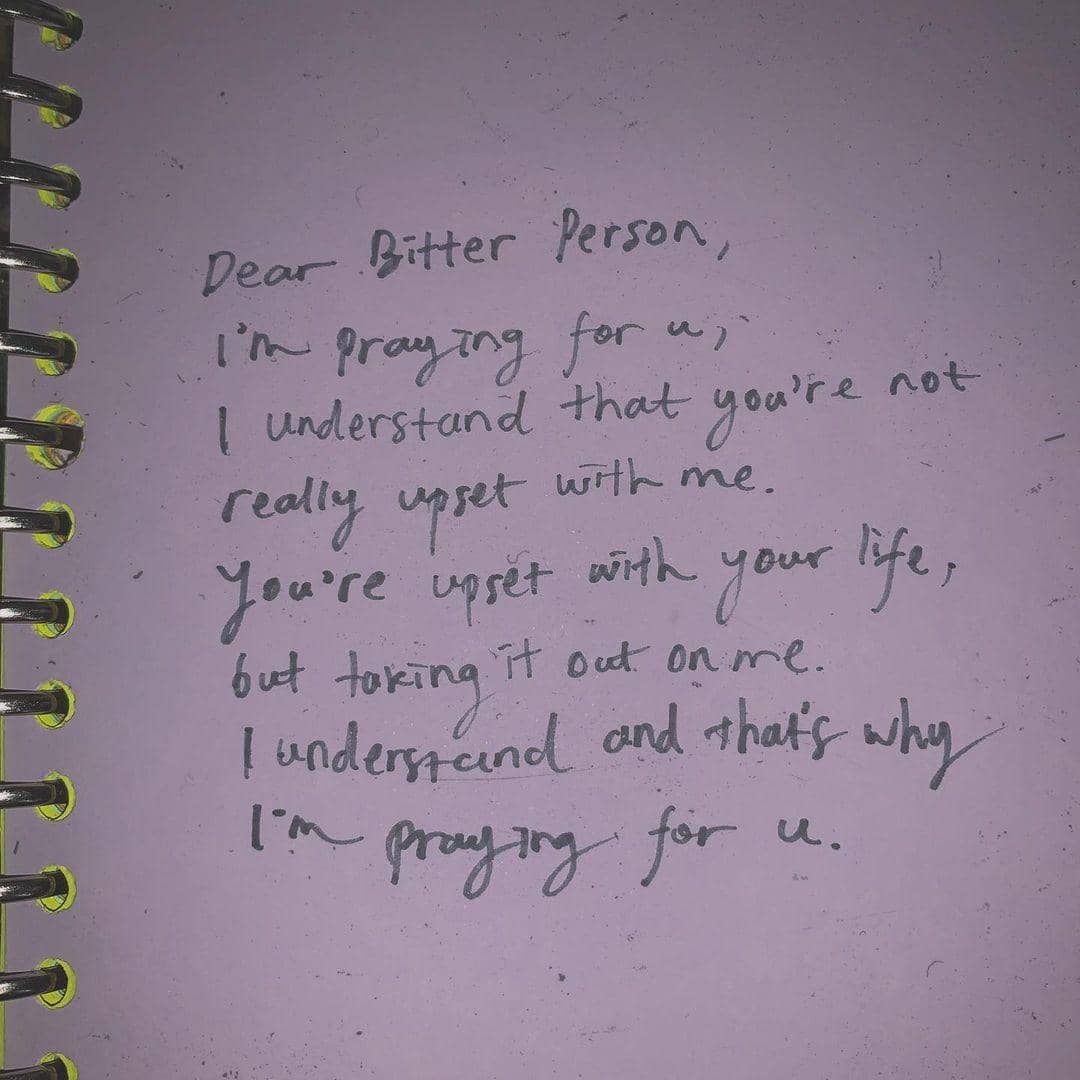 Dear Bitter Person,
I'm praying for u,
I understand that you're not
really upset with me.
You're upset with your life,
but taking it out on me.
I understand and that's why
I'm praying for u.